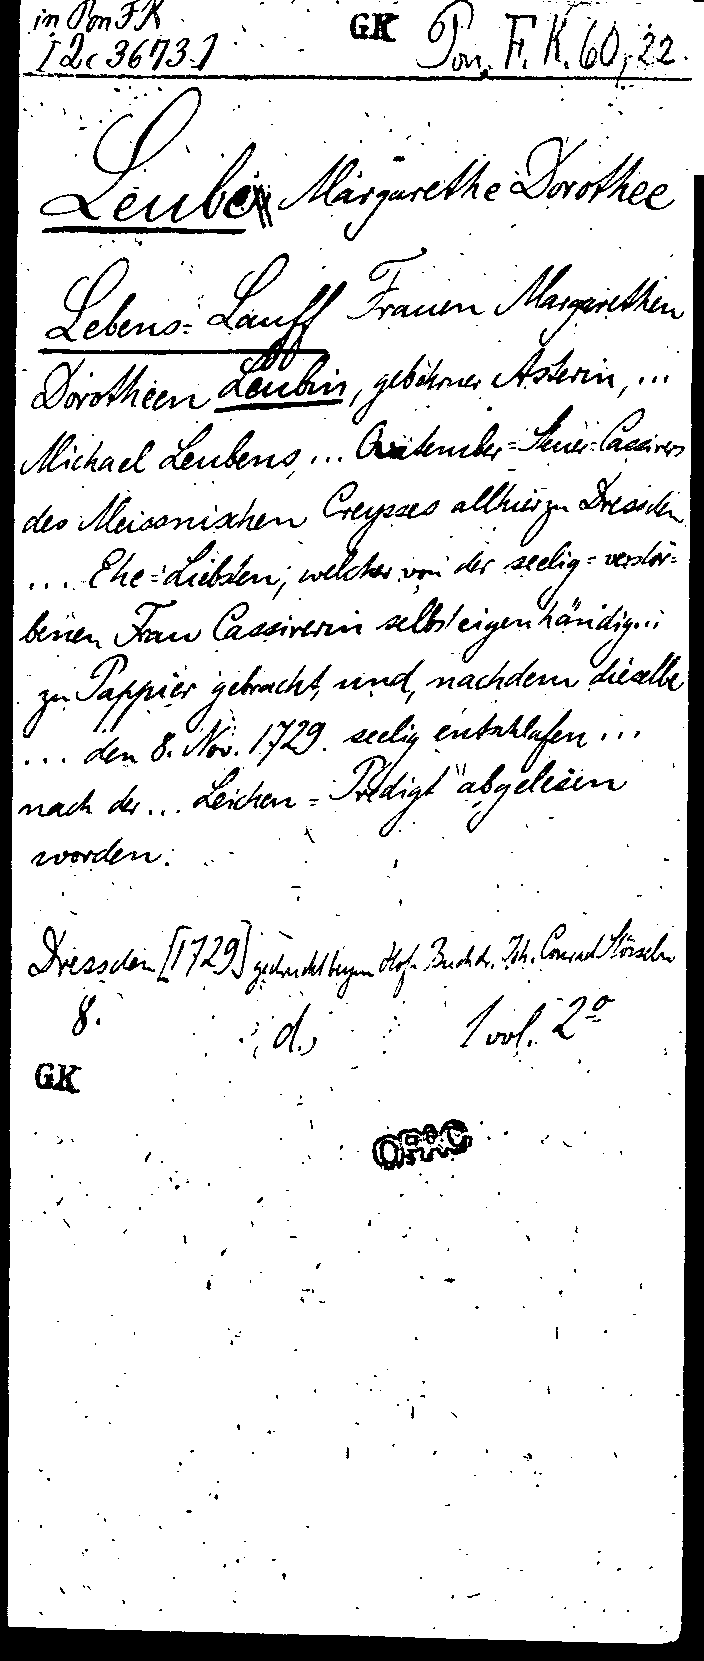 in Pon F.K
I 2c 3673.1
GK Pon. F. K. 60, 22.
Leube Margarethe Dorothee
Lebens=Lauff Frauen Margarethen
Dorotheen Leubin, gebohrner Asterin, ...
Michael Leubens, ... Quatember=Steuer=Cassirers
des Meissnischen Creysses allhier zu Dressden
... Ehe=Liebsten, welcher von der seelig=verstor=
benen Frau Cassirerin selbst eigenhändig...
zu Pappier gebracht, und, nachdem dieselbe
... den 8. Nov. 1729. seelig entschlafen ...
nach der ... Leichen=Predigt abgelesen
worden.
Dressden [1729] gedruckt beym Hof-Buchdr. Joh. Conrad Stösseln
8. d. 1 vol. 2º
GK
OPAC